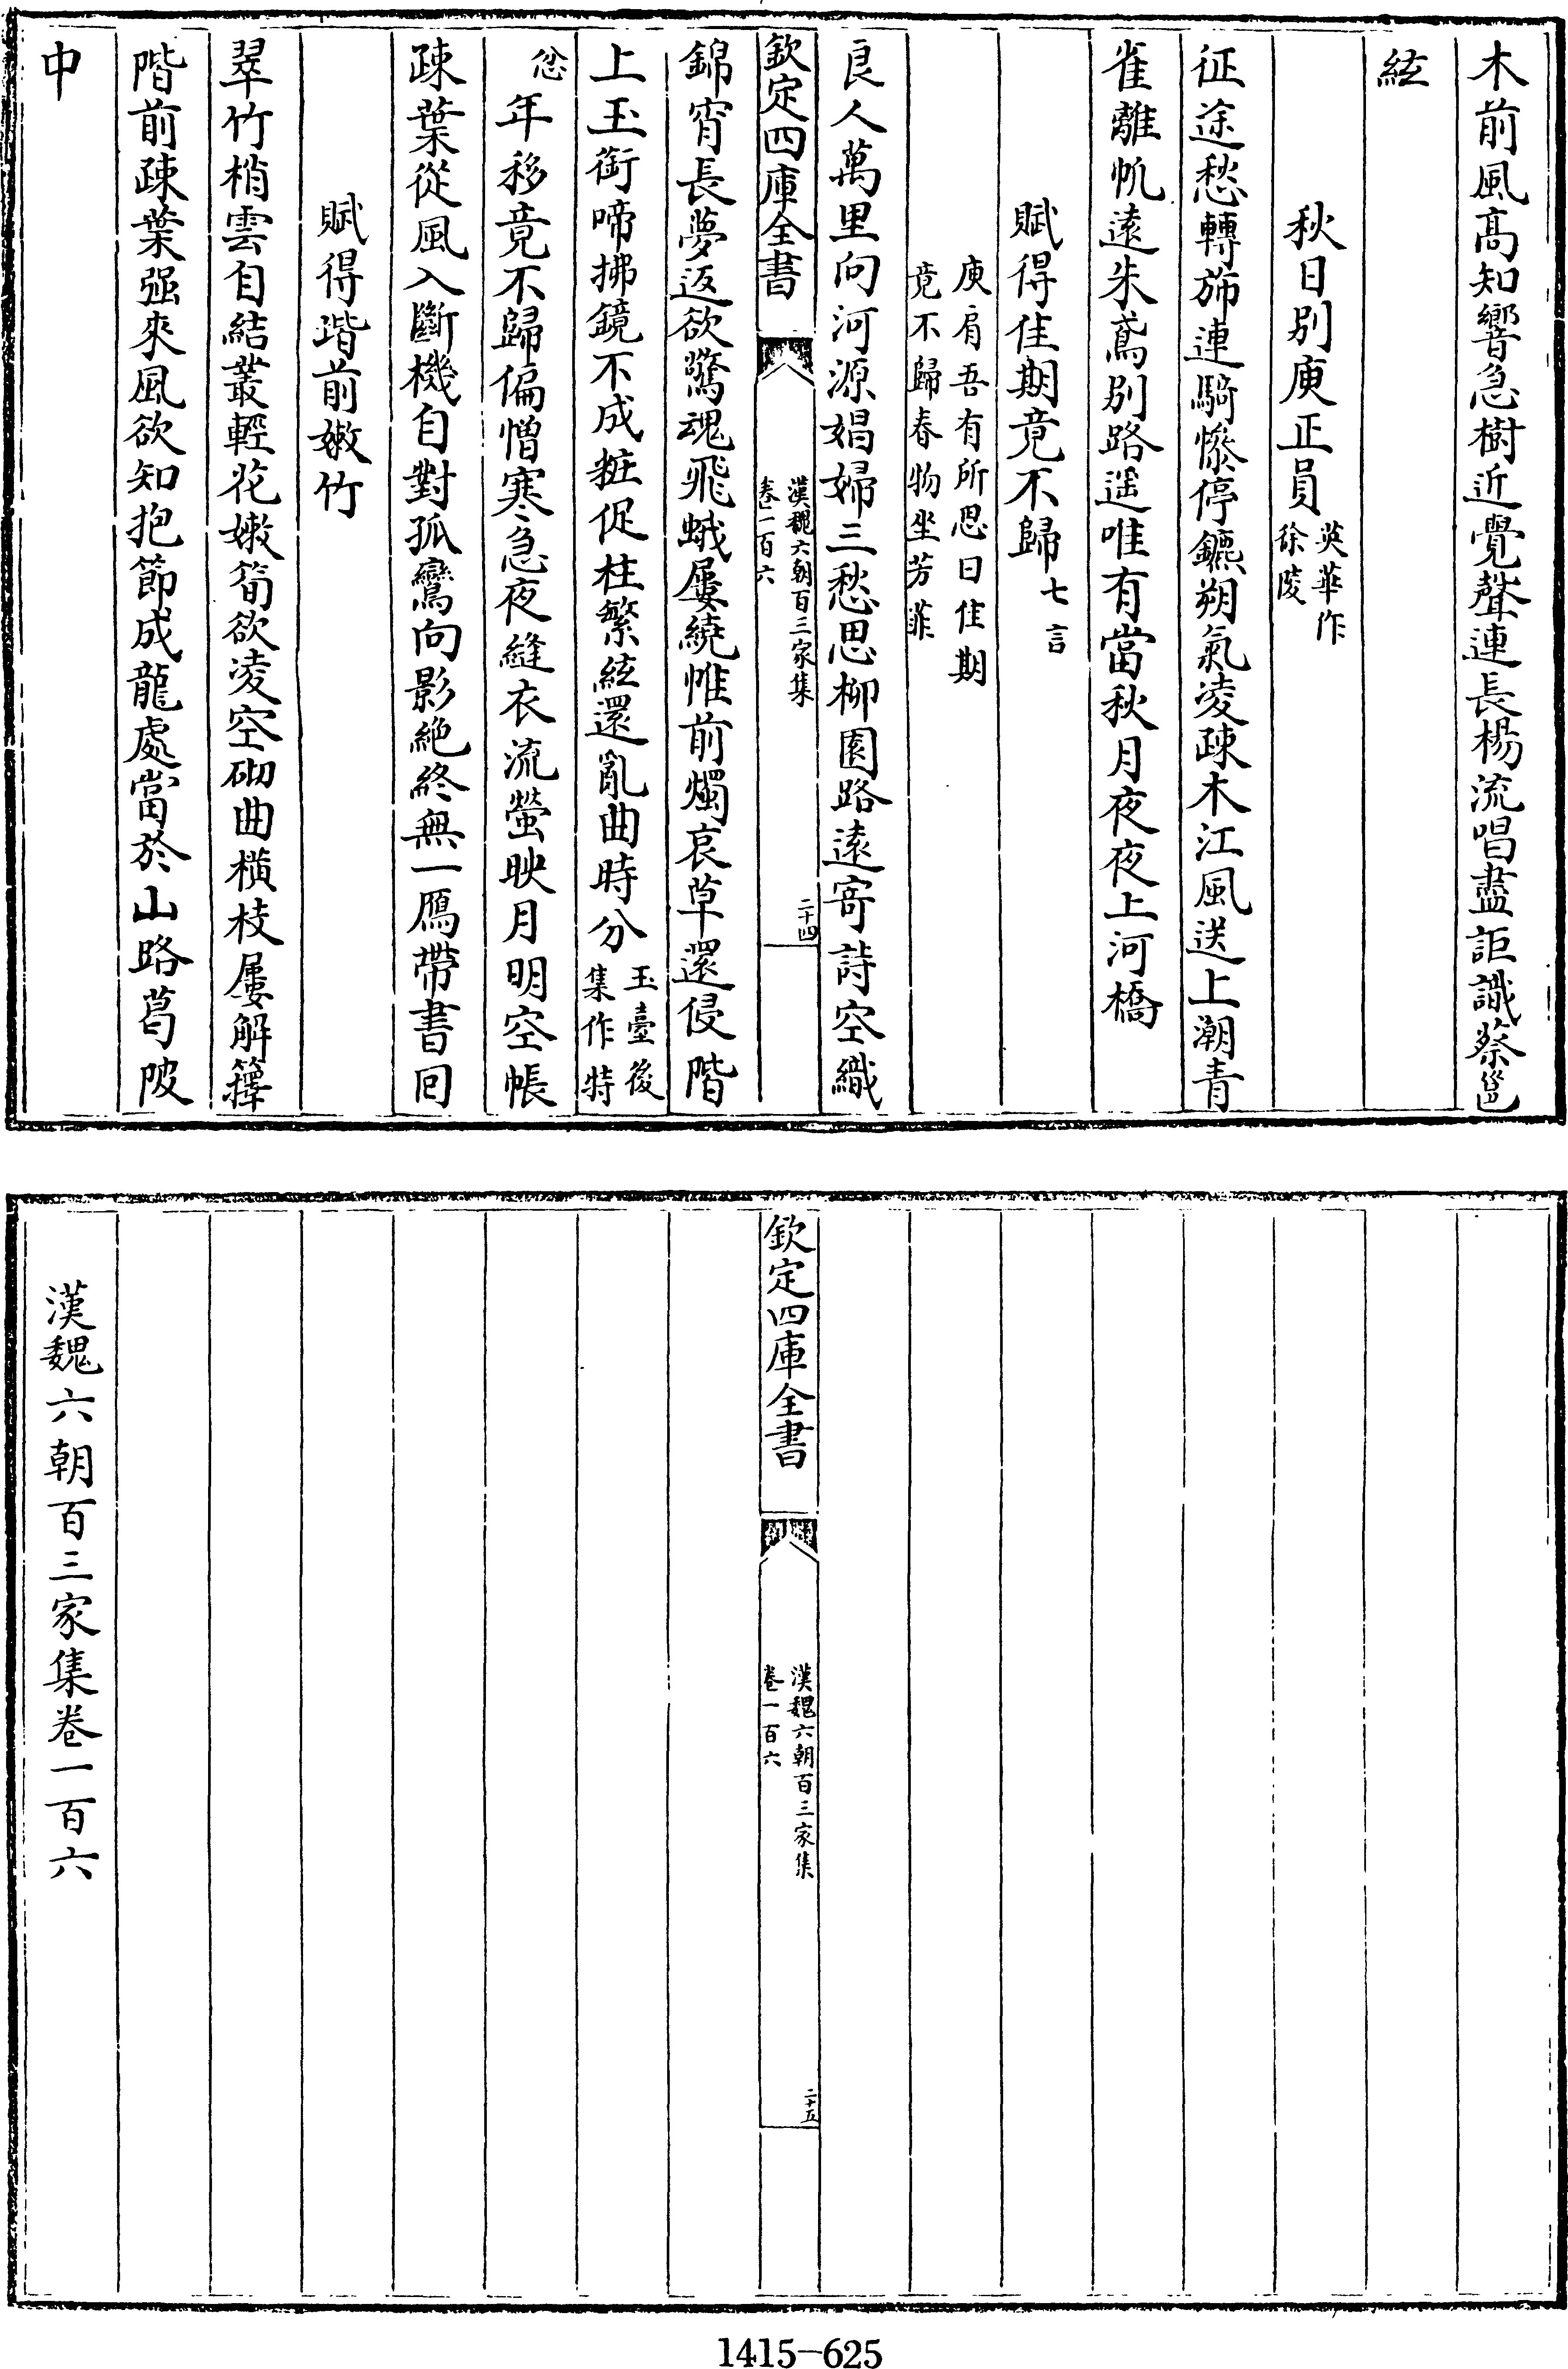 木前風髙知響急樹近覺聲連長楊流唱盡詎識蔡邕
絃
秋日别庾正員英華作徐陵
征途愁轉旆連騎慘停鑣朔氣凌疎木江風送上潮青
雀離帆遠朱鳶别路遥唯有當秋月夜夜上河橋
賦得佳期竟不歸七言
庾肩吾有所思曰佳期竟不歸春物坐芳菲
良人萬里向河源娼婦三愁思柳園路遠寄詩空織
欽定四庫全書
漢魏六朝百三家集
卷一百六
二十四
錦宵長夢返欲驚魂飛蛾屢繞惟前燭哀草還侵階
上玉銜啼拂鏡不成粧促柱繁絃還亂曲時分玉臺後集作特
忿年移竟不歸偏憎寒急夜縫衣流螢映月明空帳
疎葉從風入斷機自對孤鸞向影絶終無一鴈帶書回
賦得堦前嫩竹
翠竹梢雲自結叢輕花嫩筍欲凌空砌曲橫枝屢解籜
階前疎葉强來風欲知抱節成龍處當於山路葛陂
中
欽定四庫全書
漢魏六朝百三家集
卷一百六
二十五
漢魏六朝百三家集卷一百六
1415-625